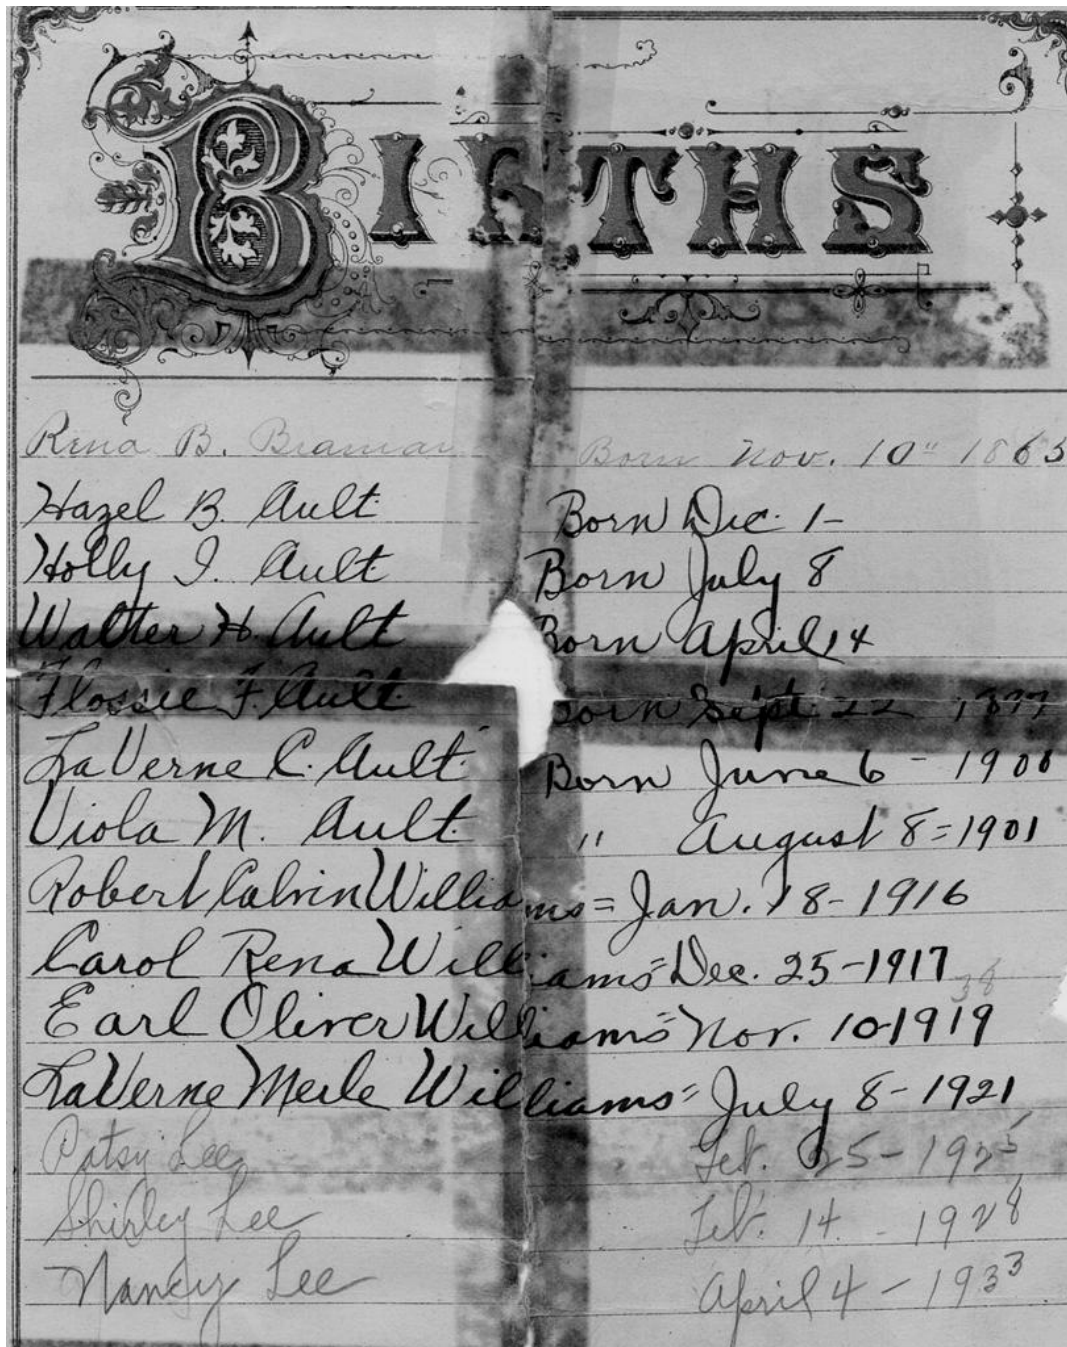 BIRTHS
Rena B. Braman Born Nov. 10" 1863
Hazel B. Ault. Born Dec. 1-
Holly I. Ault Born July 8
Walter H. Ault Born April 14
Flossie F. Ault. Born Sept. 22 1877
LaVerne C. Ault. Born June 6 - 1900
Viola M. Ault. " August 8=1901
Robert Calvin Williams = Jan. 18-1916
Carol Rena Williams= Dec. 25-1917
38
Earl Oliver Williams= Nov. 10-1919
LaVerne Merle Williams= July 8-1921
Patsy Lee Feb. 25-1925
Shirley Lee Feb. 14 - 1928
Nancy Lee April 4 - 1933